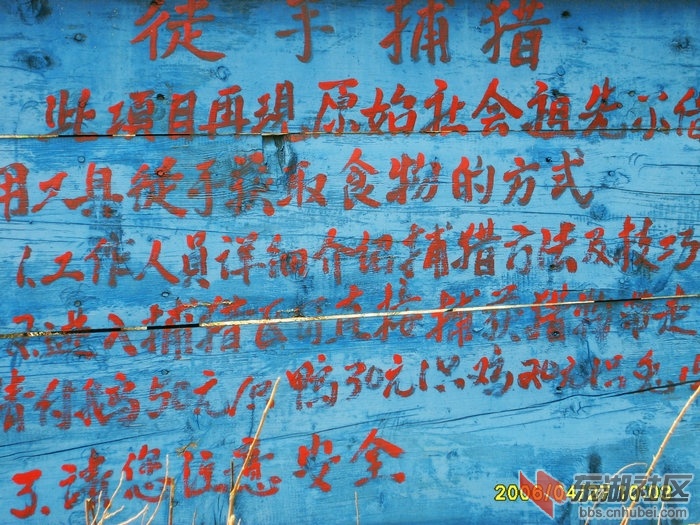 徒手捕猎
此项目再现原始社会祖先不使
用工具徒手获取食物的方式
1.工作人员详细介绍捕猎方法及技巧
2.进入捕猎区可直接捕获猎物带走
请付鹅50元/只 鸭30元/只 鸡20元/只 兔
3.请您注意安全
2006/04
东湖社区
bbs.cnhubei.com